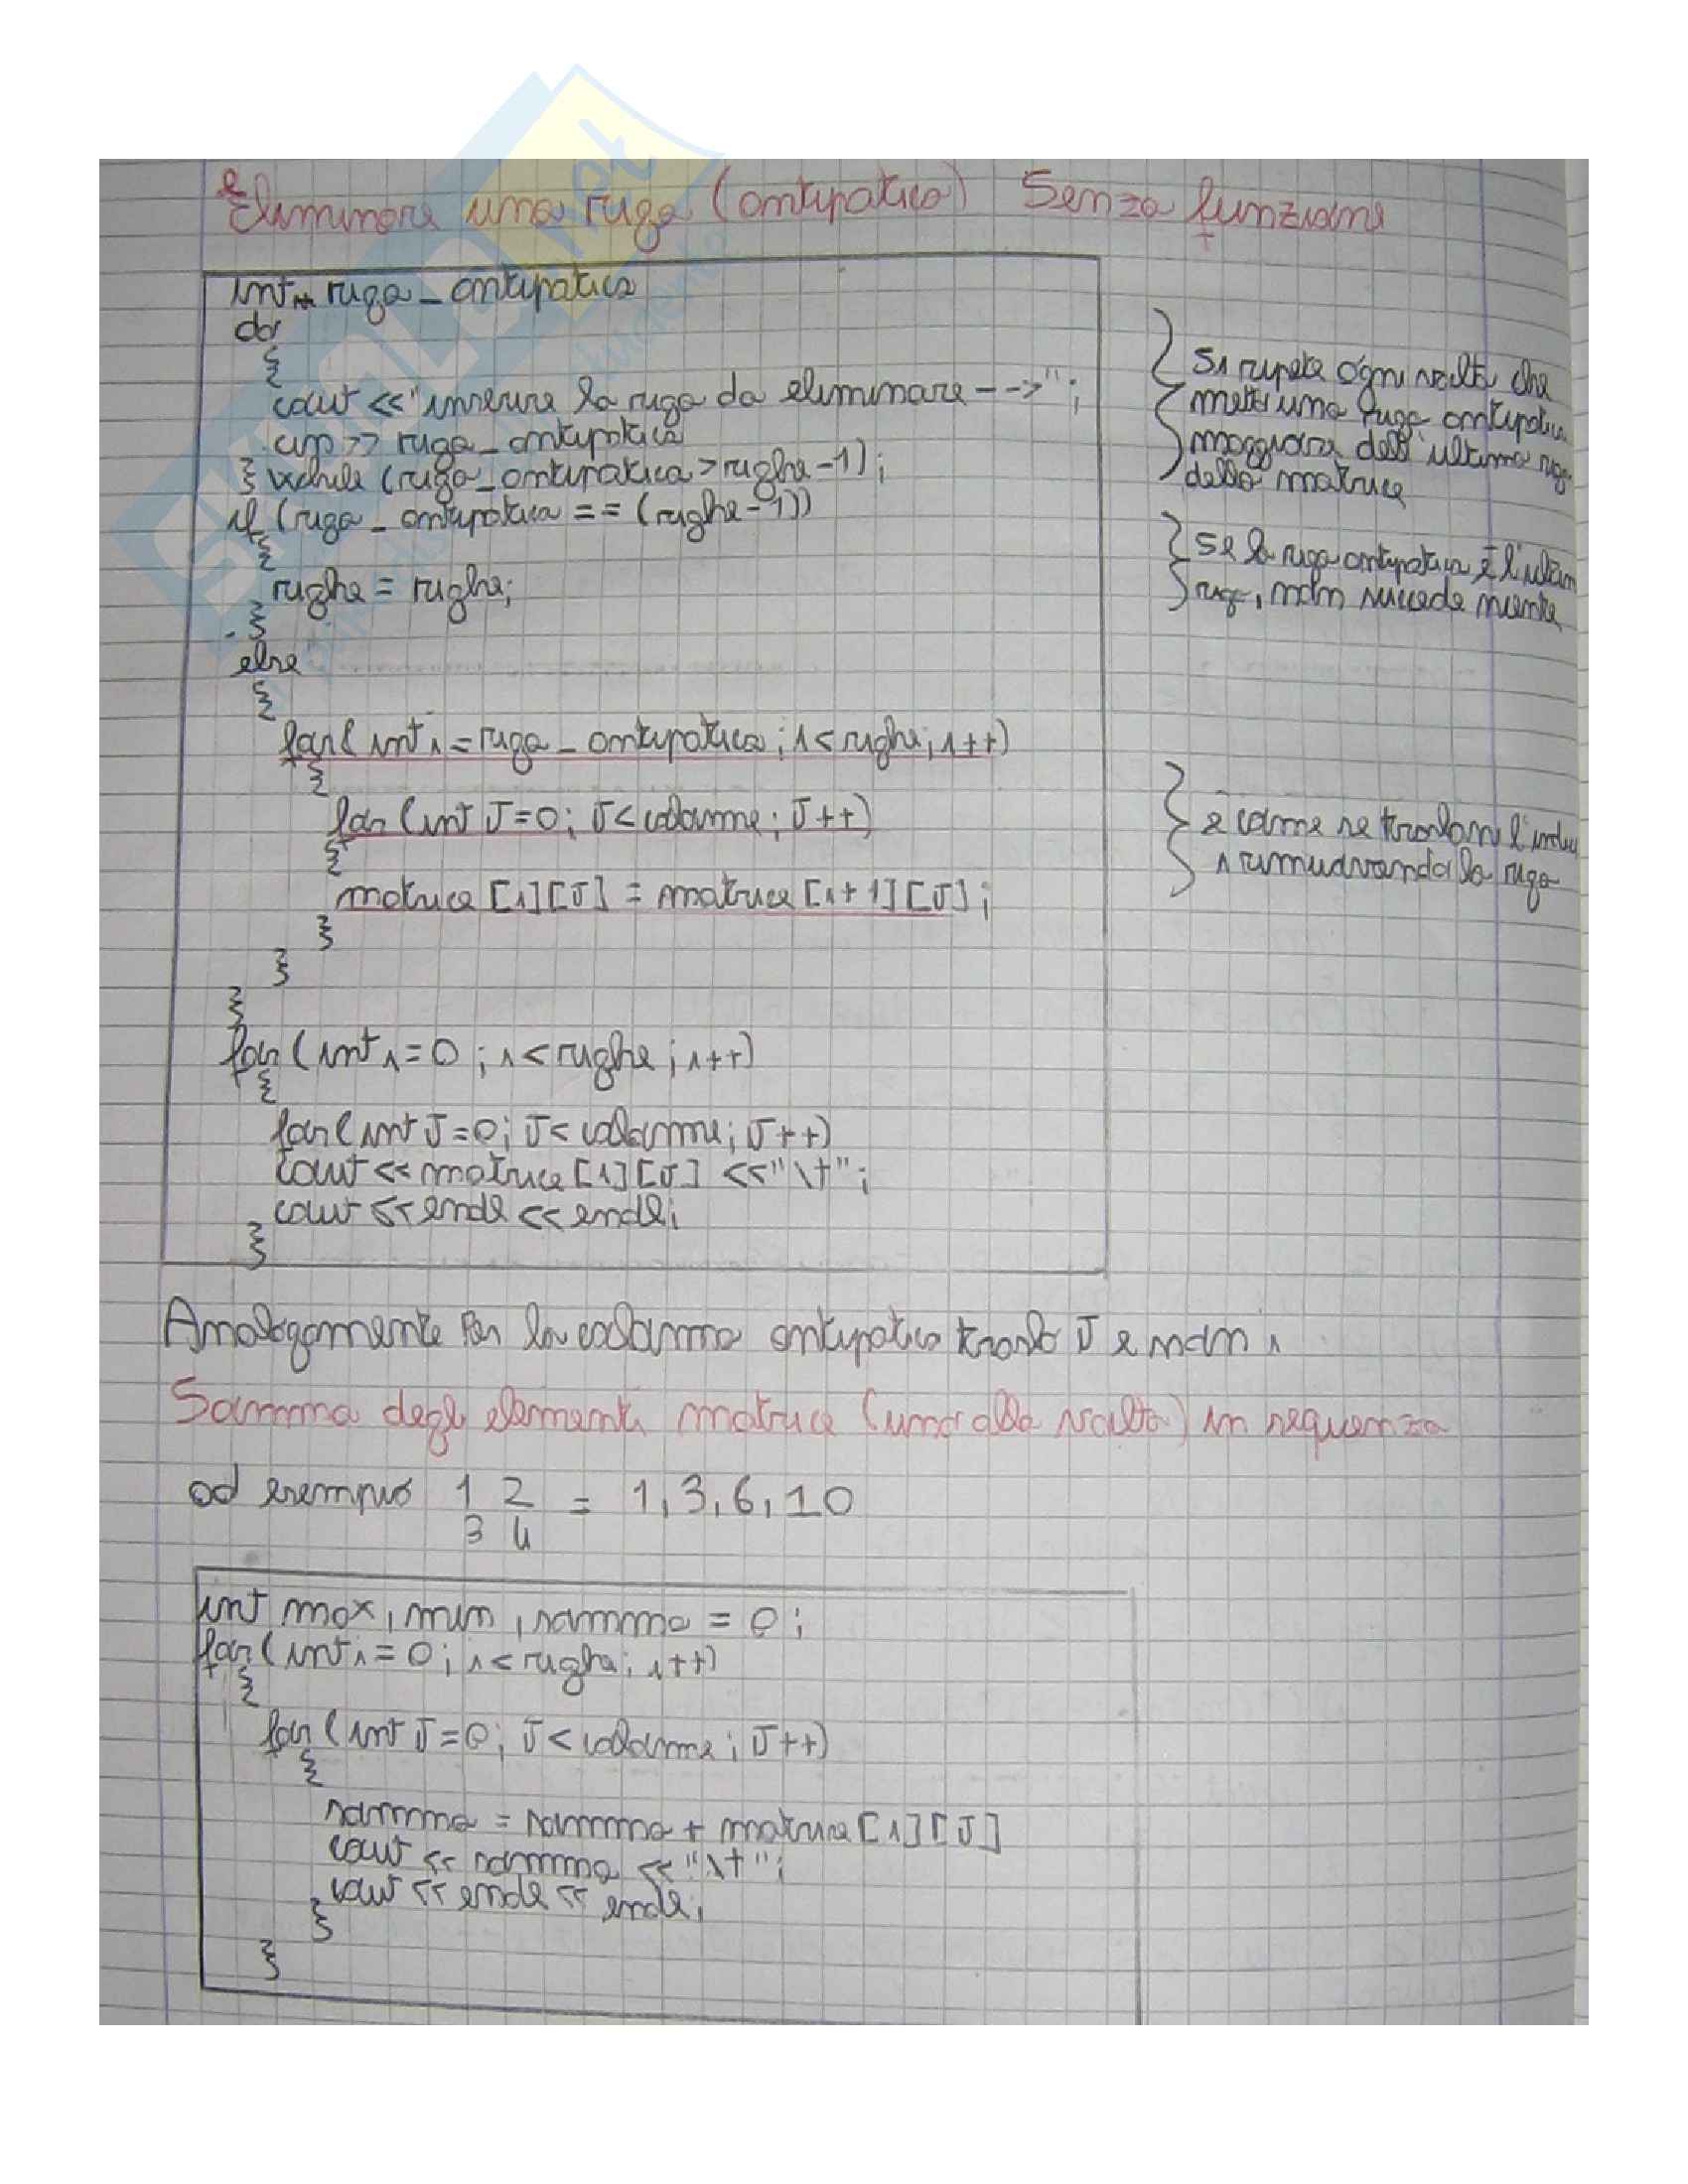 Eliminare una riga (antipatica) Senza funzioni
int riga_antipatica
do
{
cout <<"inserire la riga da eliminare-->";
cin>> riga_antipatica
} while (riga_antipatica>righe-1);
if (riga_antipatica==(righe-1))
{
righe = righe;
}
else
{
for(int i=riga_antipatica;i<righe;i++)
{
for(int J=0; J<colonne; J++)
{
matrice[i][J] = matrice[i+1][J];
}
}
}
for(int i=0;i<righe;i++)
{
for(int J=0; J<colonne; J++)
cout<<matrice[i][J] <<"\t";
cout<<endl<<endl;
}
} Si ripete ogni volta che
metti una riga antipatica
maggiore dell'ultima riga
della matrice
} Se la riga antipatica è l'ultim
riga, non succede niente
} è come se traslan l'indic
i rimuovendo la riga
Analogamente per la colonna antipatica traslo J e non i
Somma degli elementi matrice (uno alla volta) in sequenza
ad esempio 1 2 = 1,3,6,10
3 4
int max, min, somma = 0;
for(int i=0;i<righe;i++)
{
for(int J=0; J<colonne; J++)
{
somma = somma+matrice[i][J]
cout << somma <<"\t";
cout << endl << endl;
}
}
SKUOLA.net